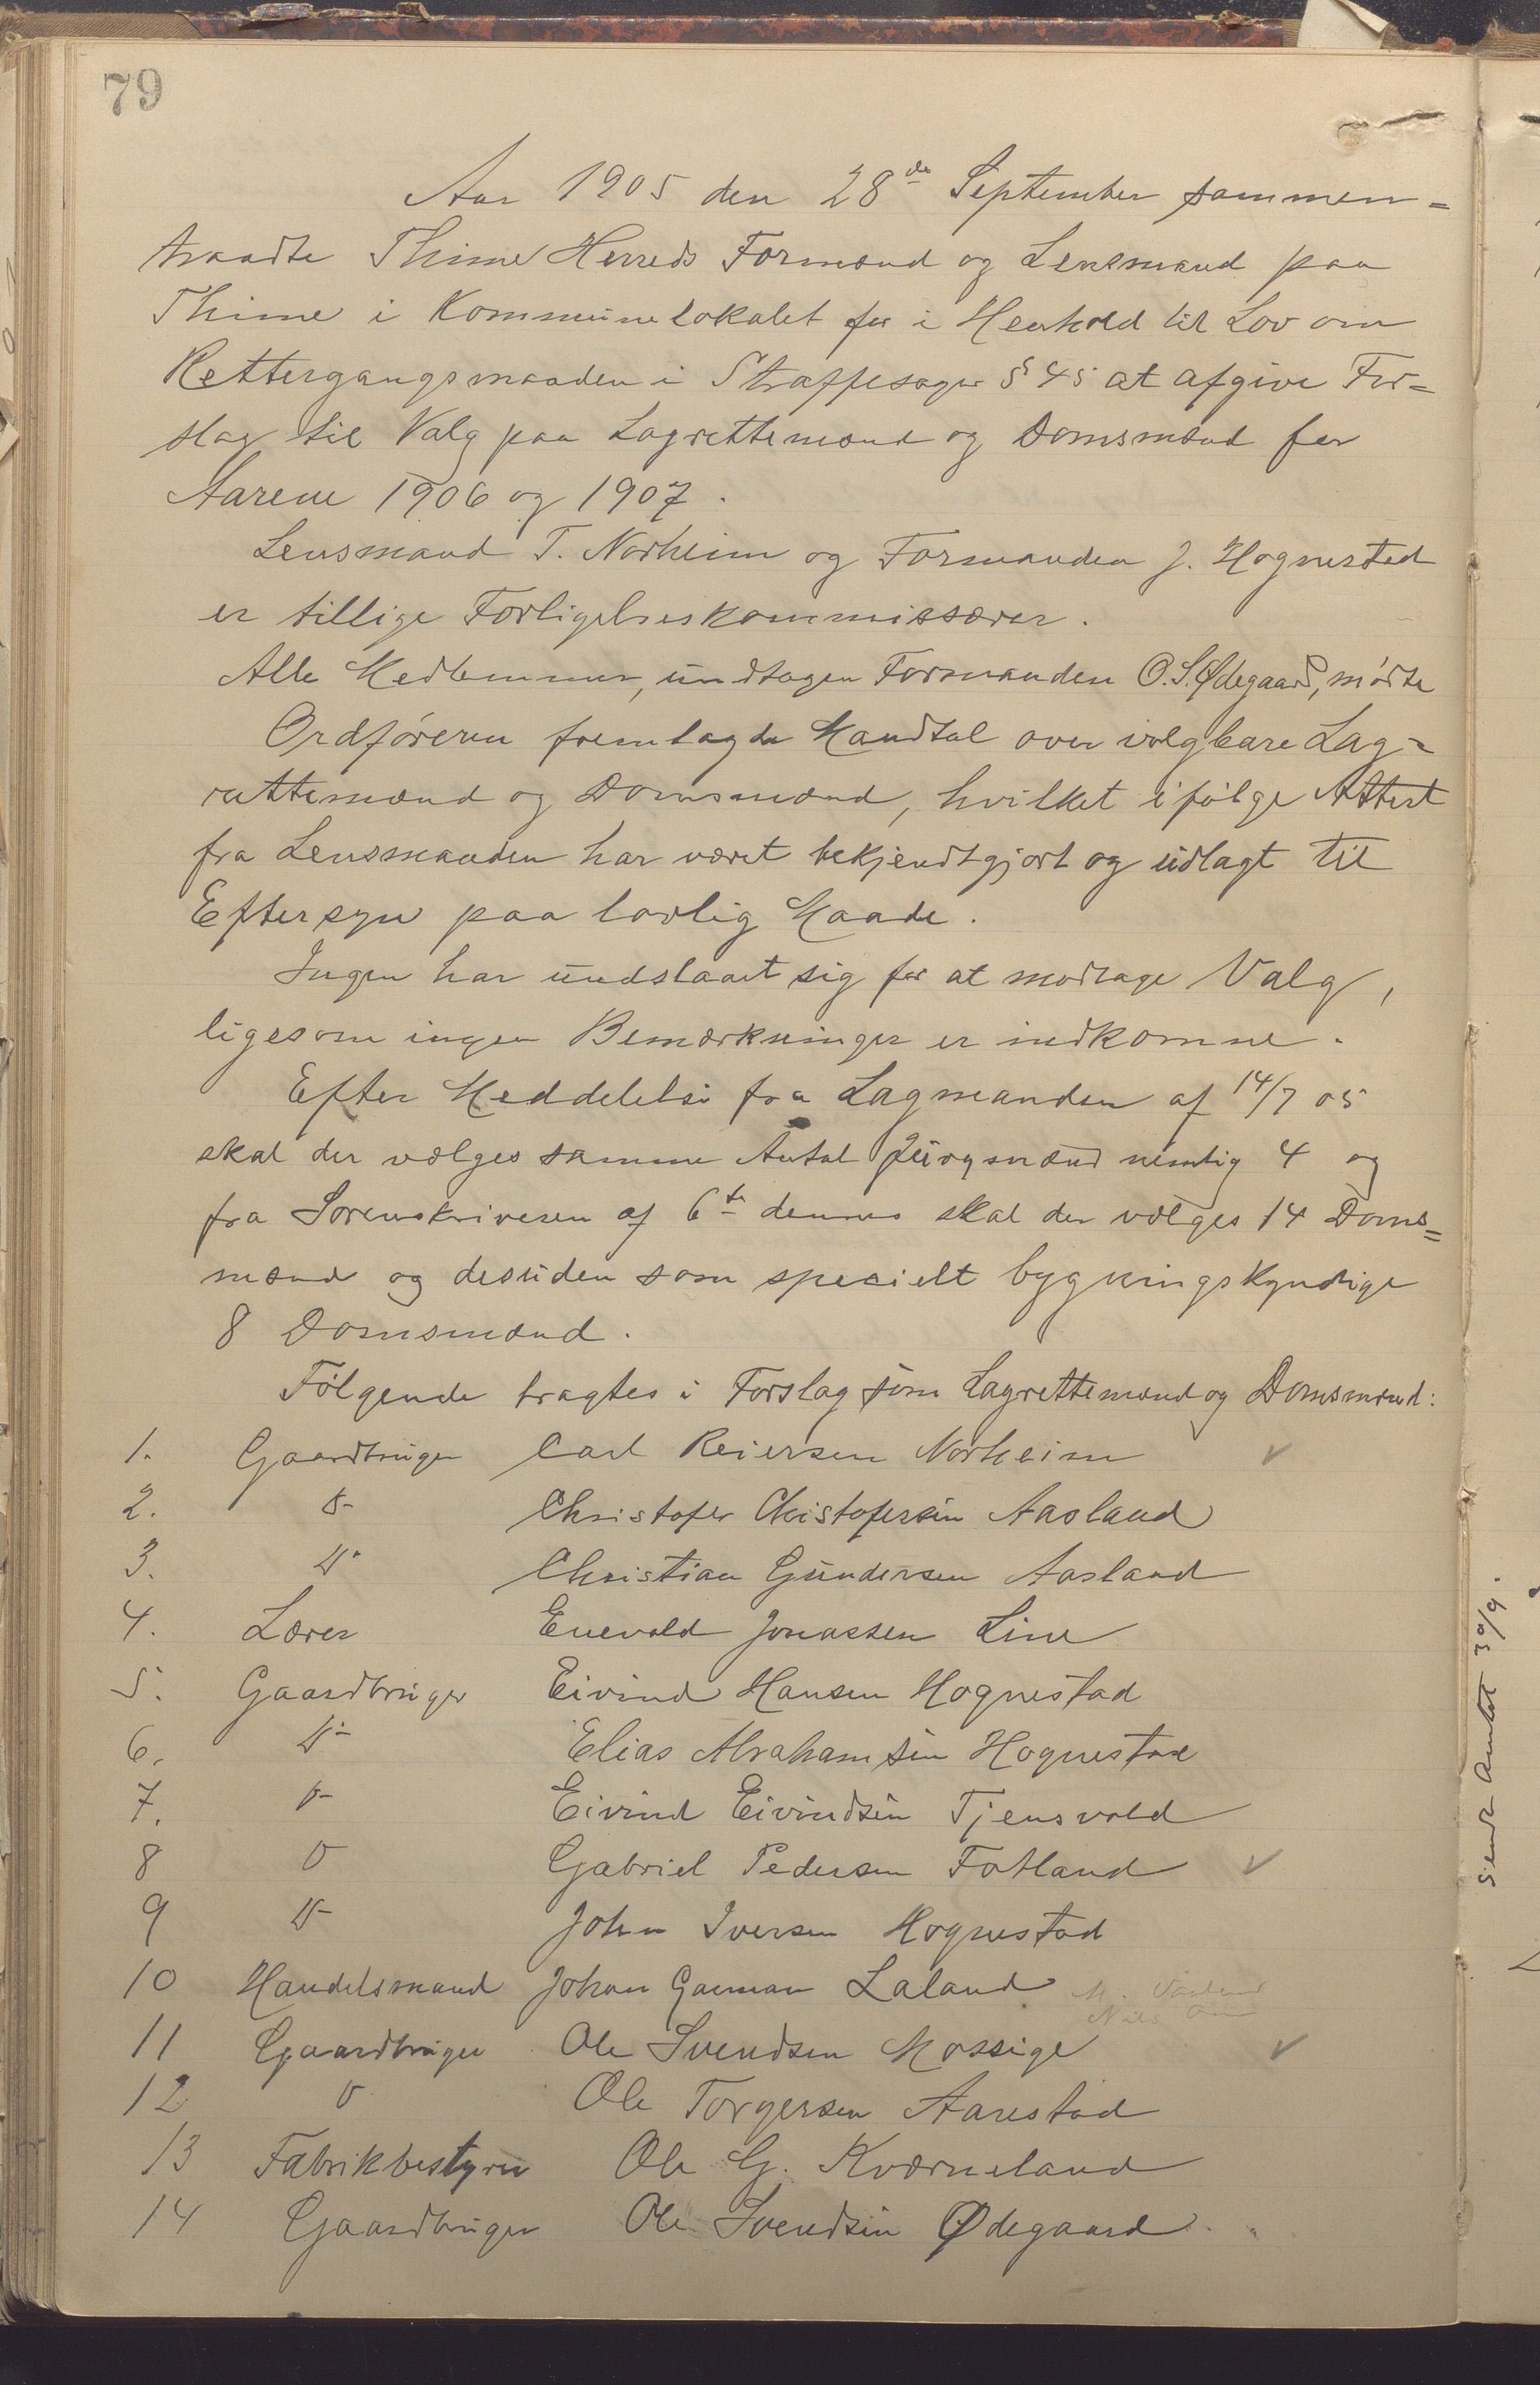 79
Aar 1905 den 28de September sammen=
traadte Thime Herreds Formænd og Lensmand paa
Thime i Kommunelokalet for i Henhold til Lov om
Rettergangsmaaden i Straffesager § 45 at afgive For=
slag til Valg paa Lagrettemænd og Domsmænd for
Aarene 1906 og 1907.
Lensmand T. Norheim og Formanden J. Hognestad
er tillige Forligelseskommissærer.
Alle Medlemmer, undtagen Formanden O. S. Ødegaard, mødte
Ordføreren fremlagde Mandtal over valgbare Lag=
rettemænd og Domsmænd, hvilket ifølge Attest
fra Lensmanden har været bekjendtgjort og udlagt til
Eftersyn paa lovlig Maade.
Ingen har undslaaet sig for at modtage Valg,
ligesom ingen Bemærkninger er indkomne.
Efter Meddelelse fra Lagmanden af 14/7 05
skal der vælges samme Antal Jurymænd nemlig 4 og
fra Sorenskriveren af 6te dennes skal der vælges 14 Doms=
mænd og desuden som specielt bygningskyndige
8 Domsmænd.
Følgende bragtes i Forslag som Lagrettemænd og Domsmænd:
1. Gaardbruger Carl Reiersen Norheim ✓
2. D- Christofer Christofersen Aasland
3. D- Christian Gundersen Aasland
4. Lærer Enevald Jonassen Line
5. Gaardbruger Eivind Hansen Hognestad
6. D- Elias Abrahamsen Hognestad
7. D- Eivind Eivindsen Tjensvold
8 D Gabriel Pedersen Fotland ✓
9 D- John Iversen Hognestad
10 Handelsmand Johan Garman Laland
11 Gaardbruger Ole Svendsen Mossige ✓
12 D Ole Torgersen Aarestad
13 Fabrikbestyrer Ole G. Kværneland
14 Gaardbruger Ole Svendsen Ødegaard.
Sendt Amtet 30/9.